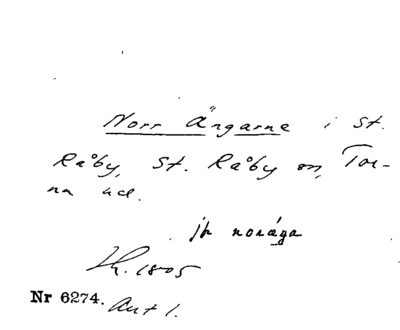 Norr Ängarne i St.
Råby, St. Råby sn, Tor-
na hd.
jfr norága
Lk. 1805
Nr 6274. Akt 1.